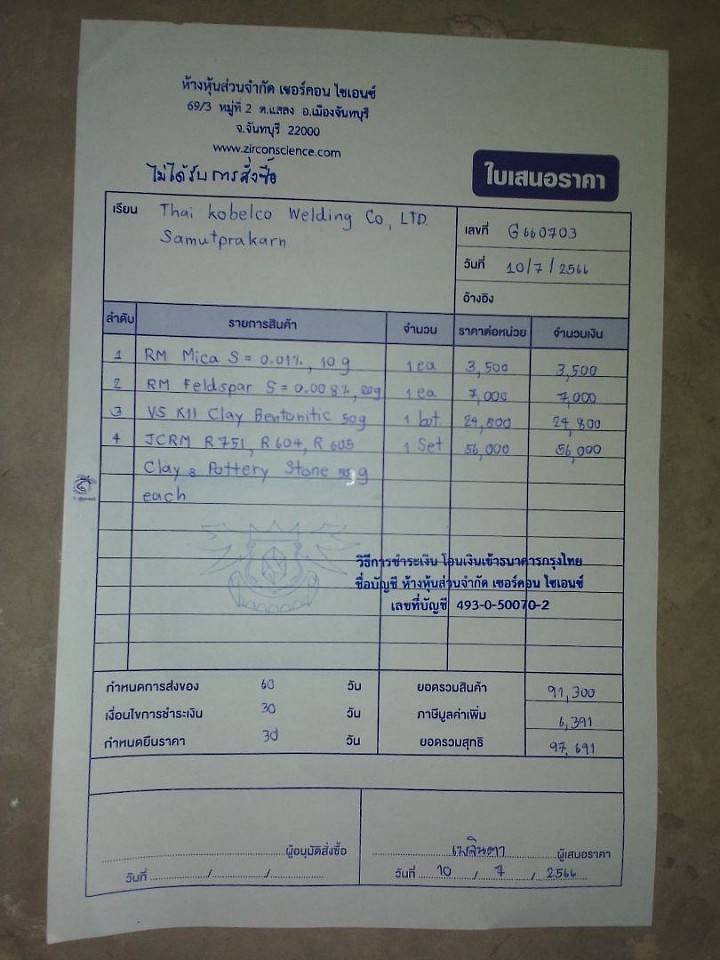 ห้างหุ้นส่วนจำกัด เซอร์คอน ไซเอนซ์
69/3 หมู่ที่ 2 ต.แสลง อ.เมืองจันทบุรี
จ.จันทบุรี 22000
www.zirconscience.com
ไม่ได้รับการสั่งซื้อ
ใบเสนอราคา
เรียน Thai kobelco Welding Co., LTD.
Samutprakarn
เลขที่ G660703
วันที่ 10/7/2566
อ้างอิง
ลำดับ รายการสินค้า จำนวน ราคาต่อหน่วย จำนวนเงิน
1 RM Mica S = 0.01%, 10 g 1 ea 3,500 3,500
2 RM Feldspar S = 0.008%, g 1 ea 7,000 7,000
3 VS K11 Clay Bentonitic 50g 1 bot 24,800 24,800
4 JCRM R751, R604, R605 1 Set 56,000 56,000
Clay & Pottery Stone g
each
วิธีการชำระเงิน โอนเงินเข้าธนาคารกรุงไทย
ชื่อบัญชี ห้างหุ้นส่วนจำกัด เซอร์คอน ไซเอนซ์
เลขที่บัญชี 493-0-50070-2
กำหนดการส่งของ 60 วัน ยอดรวมสินค้า 91,300
เงื่อนไขการชำระเงิน 30 วัน ภาษีมูลค่าเพิ่ม 6,391
กำหนดยืนราคา 30 วัน ยอดรวมสุทธิ 97,691
ผู้อนุมัติสั่งซื้อ
วันที่ / /
เมลินดา ผู้เสนอราคา
วันที่ 10 / 7 / 2566